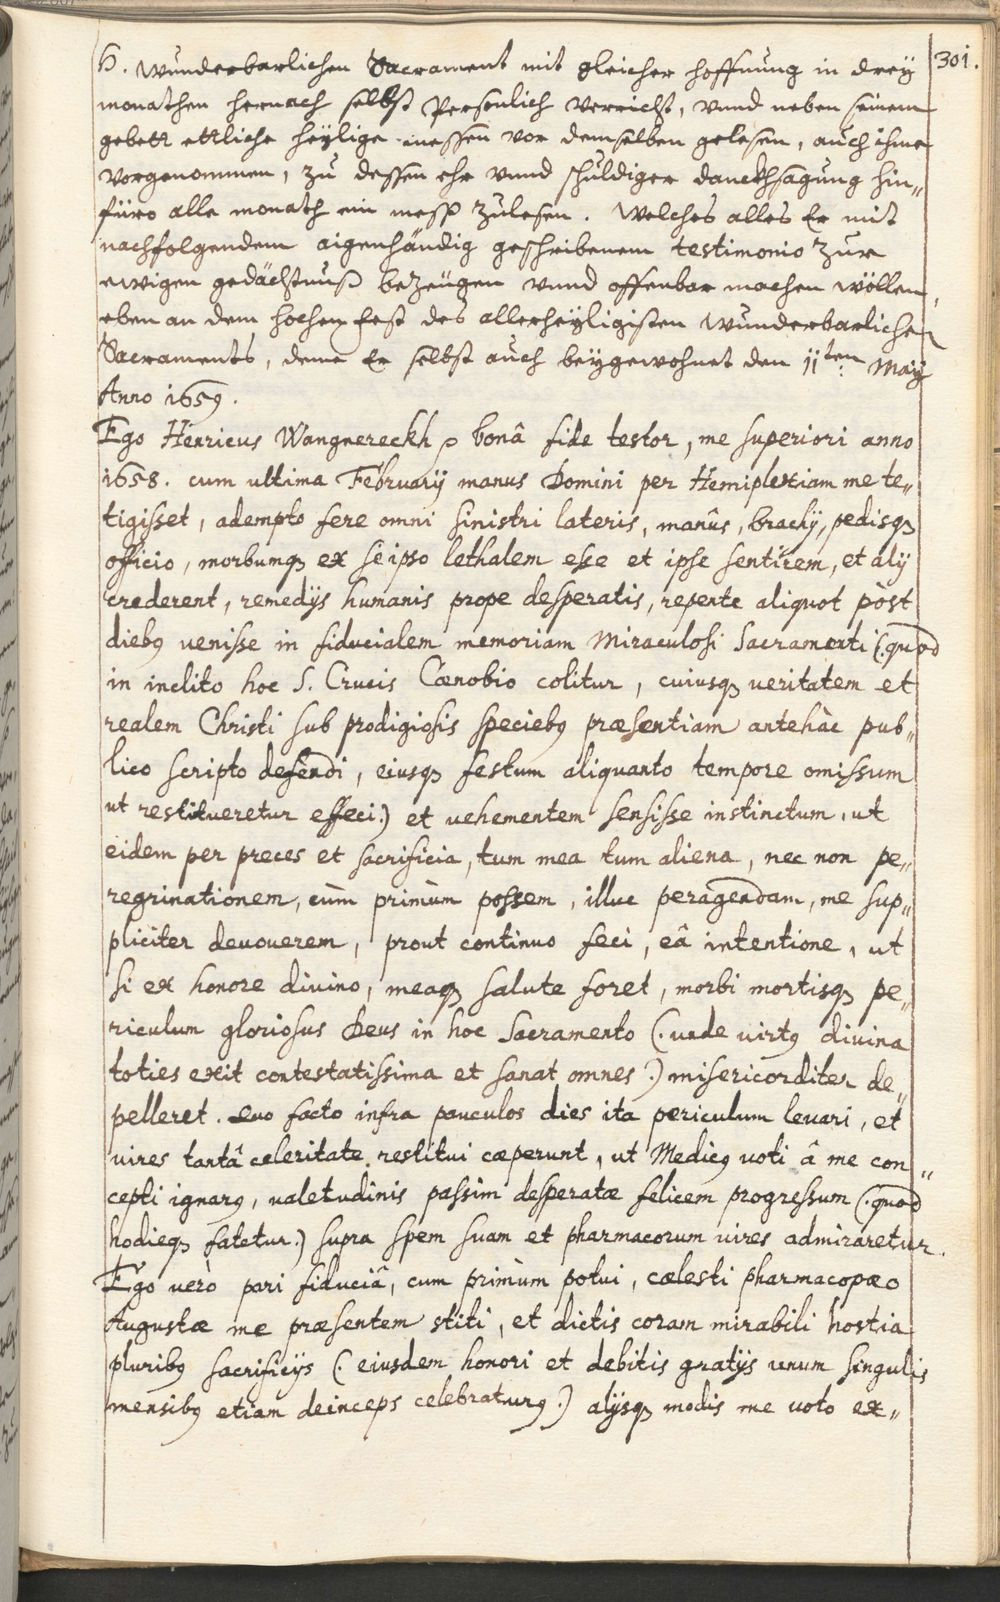 301.
H. Wunderbarlichen Sacrament mit gleicher hoffnung in dreÿ
monathen hernach selbst Persönlich verricht, vnnd neben seinem
gebett ettliche heÿlige messen vor demselben gelesen, auch ihme
vorgenommen, zu dessen ehr vnnd schuldiger danckhsagung hin„
füro alle monath ein mess zulesen. Welches alles Er mit
nachfolgendem aigenhändig geschribenem testimonio zur
ewigen gedächtnuß bezeügen vnnd offenbar machen wöllen,
eben an dem hochen Fest des allerheÿligisten Wunderbarlichen
Sacraments, deme Er selbst auch beÿgewohnet den 11ten: Maÿ
Anno 1659.
Ego Henricus Wangnereckh bonâ fide testor, me superiori anno
1658. cum ultima Februarÿ manus Domini per Hemiplexiam me te„
tigisset, adempto fere omni sinistri lateris, manûs, brachÿ, pedisq₃
officio, morbumq₃ ex seipso lethalem esse et ipse sentirem, et alÿ
crederent, remedÿs humanis prope desperatis, repente aliquot pòst
dieb9 venisse in fiducialem memoriam Miraculosi Sacramenti (.quod
in inclito hoc S. Crucis Cœnobio colitur, cuiusq₃ veritatem et
realem Christi sub prodigiosis specieb9 præsentiam antehàc pub„
lico scripto defendi, eiusq₃ festum aliquanto tempore omissum
ut restitueretur effeci.) et vehementem sensisse instinctum, ut
eidem per preces et sacrificia, tum mea tum aliena, nec non pe„
regrinationem, cùm primùm possem, illuc peragendam, me sup„
pliciter devoverem, prout continuo feci, eâ intentione, ut
si ex honore divino, meaq₃ salute foret, morbi mortisq₃ pe„
riculum gloriosus Deus in hoc Sacramento (.unde virt9 divina
toties exit contestatissima et sanat omnes.) misericorditer de„
pelleret. Quo facto infra pauculos dies ita periculum levari, et
vires tantâ celeritate restitui cæperunt, ut Medic9 voti â me con„
cepti ignar9, valetudinis passim desperatæ felicem progressum (.quod
hodieq₃ fatetur.) supra spem suam et pharmacorum vires admiraretur.
Ego verò pari fiduciâ, cum primùm potui, cælesti pharmacopæo
Augustæ me præsentem stiti, et dictis coram mirabili hostia
plurib9 sacrificÿs (.eiusdem honori et debitis gratÿs unum singulis
mensib9 etiam deinceps celebratur9.) alÿsq₃ modis me voto ex„